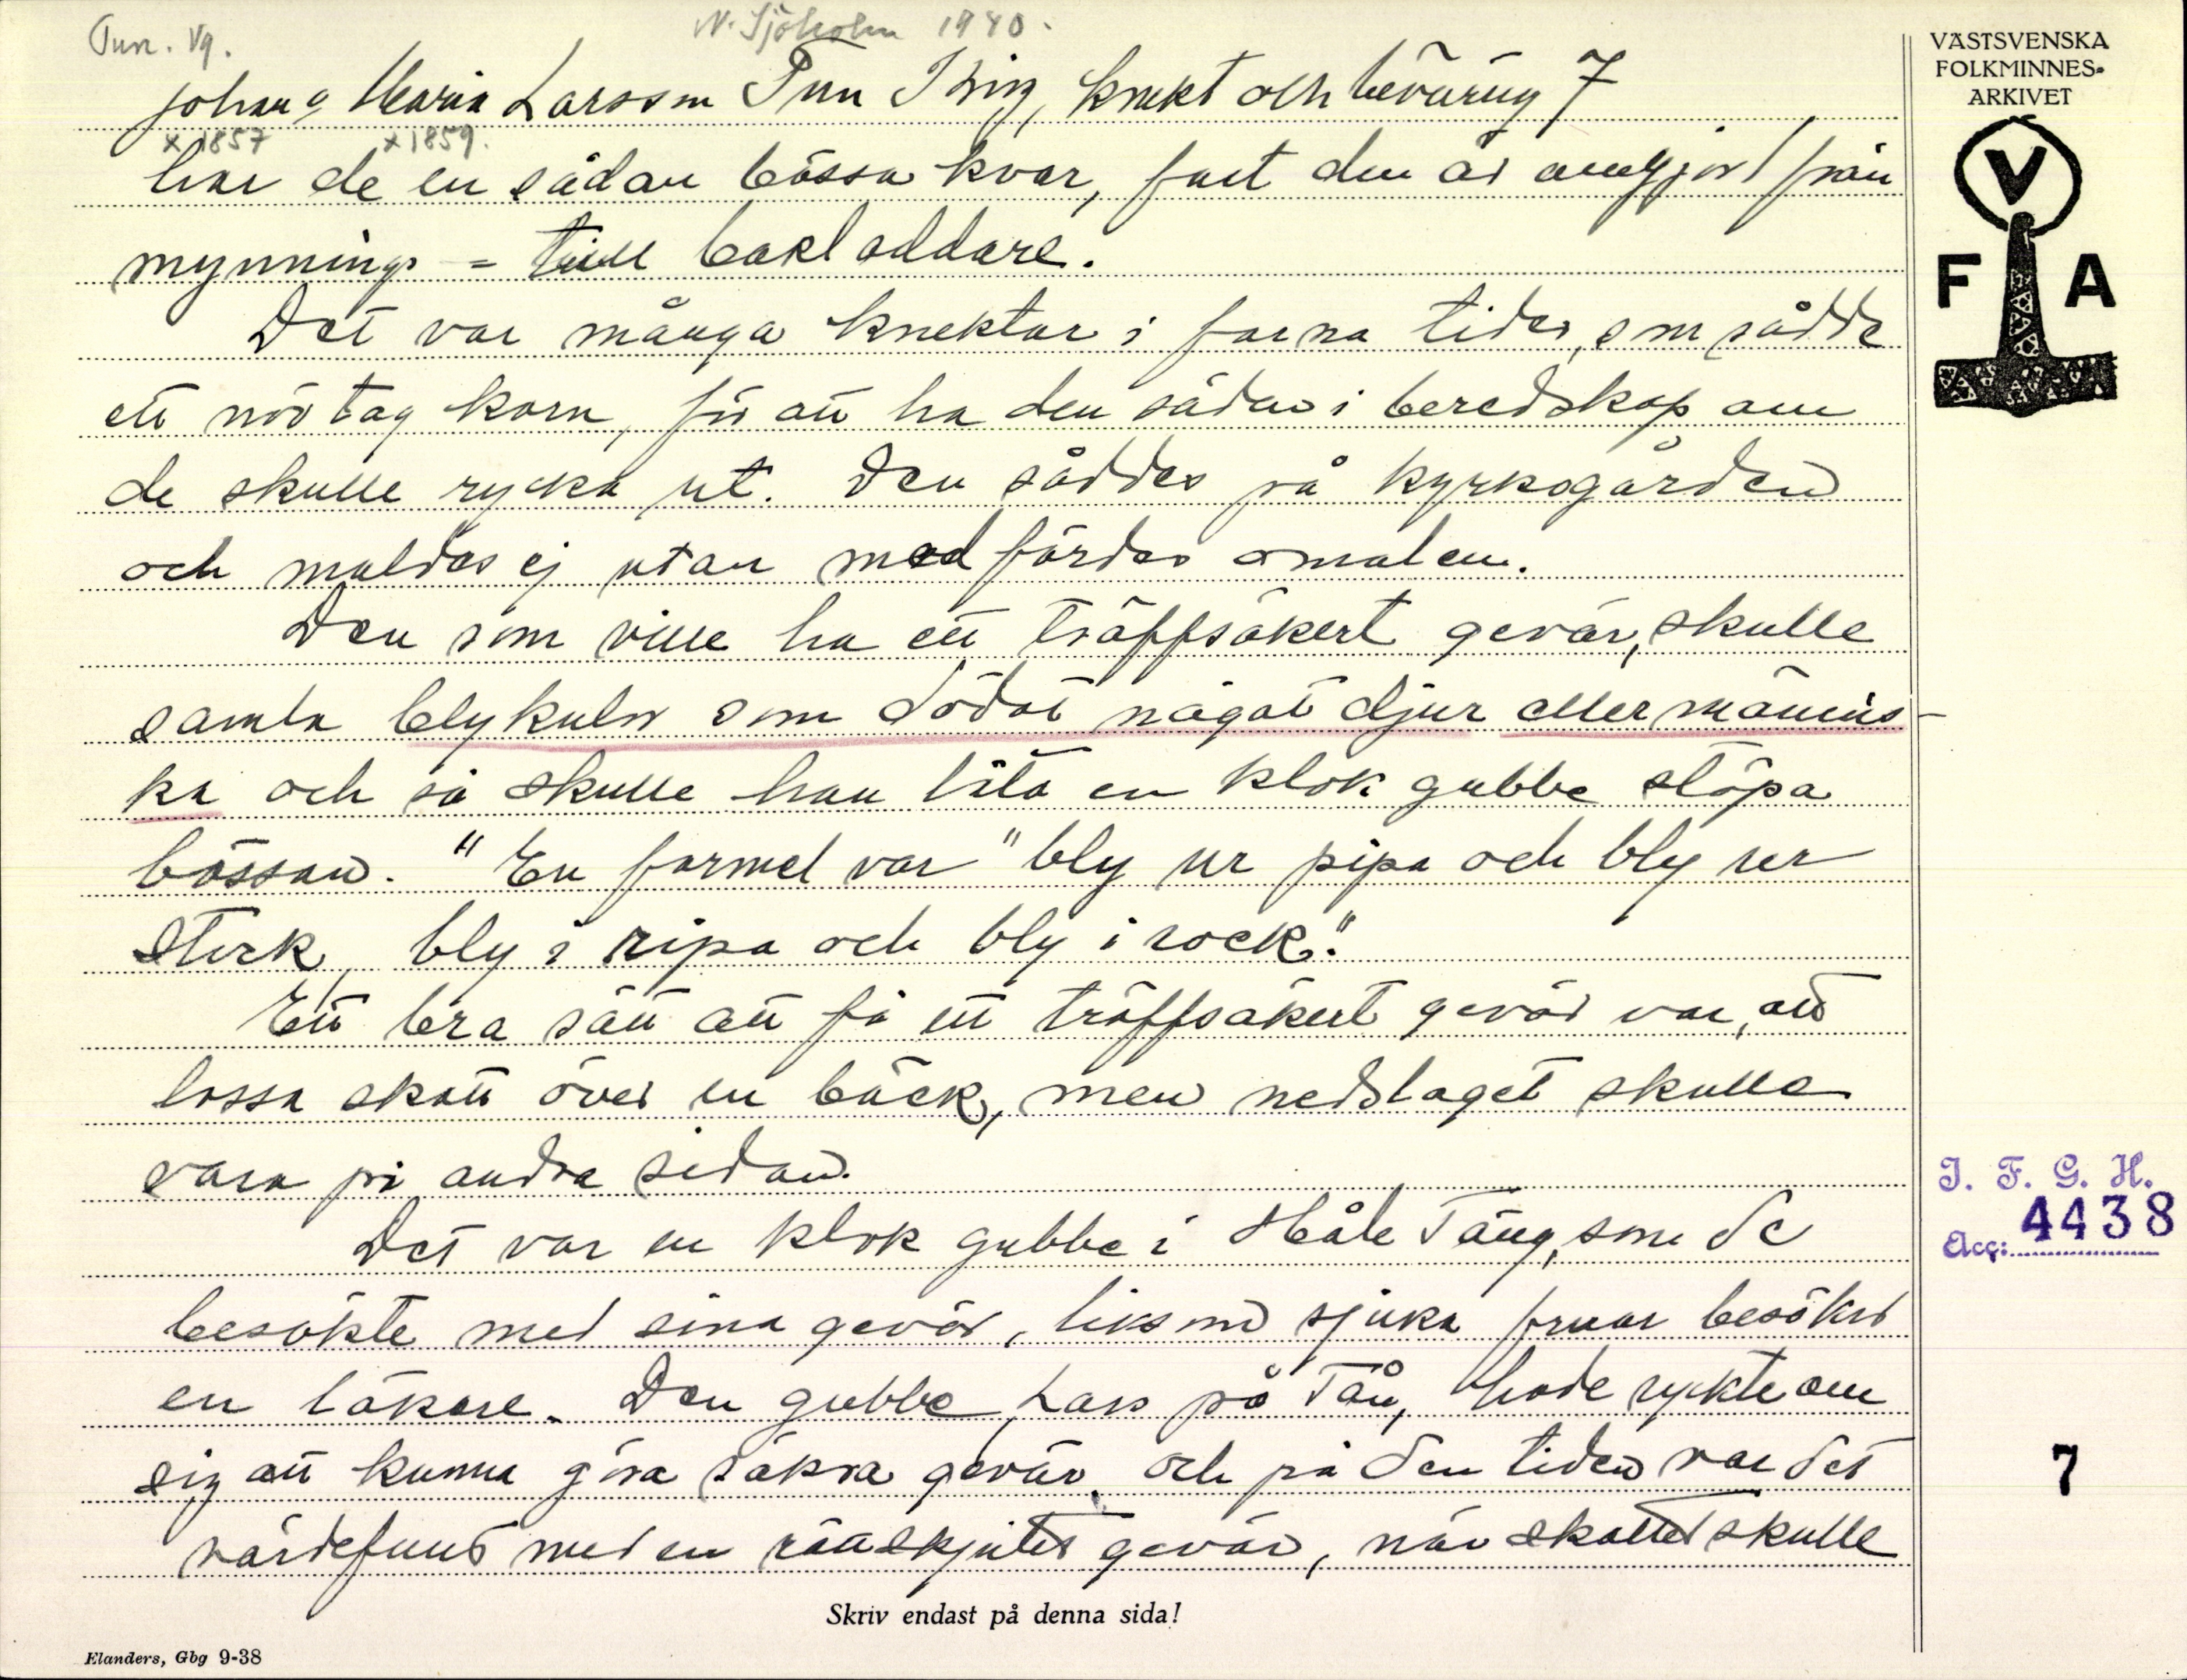 Tun. Vg.
N. Sjöholm 1940.
Johan o Maria Larsson Tun Krig, knekt och beväring 7
x 1857 x 1859.
har de en sådan bössa kvar, fast den är omgjord från
mynnings- till bakladdare.
Det var många knektar i forna tider, som sådde
ett nävtag korn, för att ha den säden i beredskap om
de skulle rycka ut. Den såddes på kyrkogården
och maldes ej utan medfördes omalen.
Den som ville ha ett träffsäkert gevär, skulle
samla blykulor som dödat något djur eller männis-
ka och så skulle han låta en klok gubbe stöpa
bössan. "En formel var "bly ur pipa och bly ur
stock, bly i ripa och bly i rock."
Ett bra sätt att få ett träffsäkert gevär var, att
lossa skott över en bäck, men nedslaget skulle
vara på andra sidan.
Det var en klok gubbe i Håle Täng, som de
besökte med sina gevär, liksom sjuka fruar besöker
en läkare. Den gubbe, Lars på Tån, hade rykte om
sig att kunna göra säkra gevär och på den tiden var det
värdefullt med en rättskjutet gevär, när skottet skulle
VÄSTSVENSKA
FOLKMINNES-
ARKIVET
V
F A
I. F. G. H.
Acc: 4438
7
Skriv endast på denna sida!
Elanders, Gbg 9-38